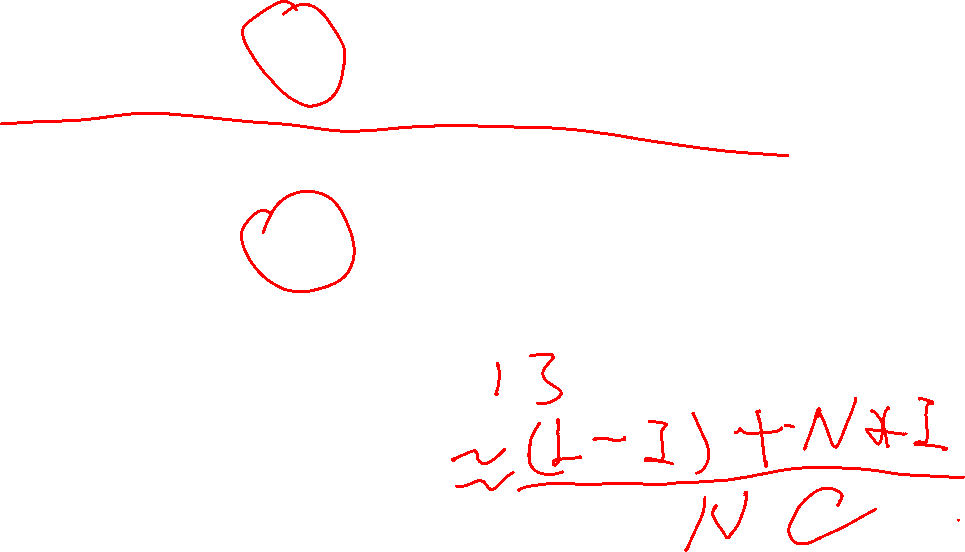 13
≈ (L-I)+N*I
NC